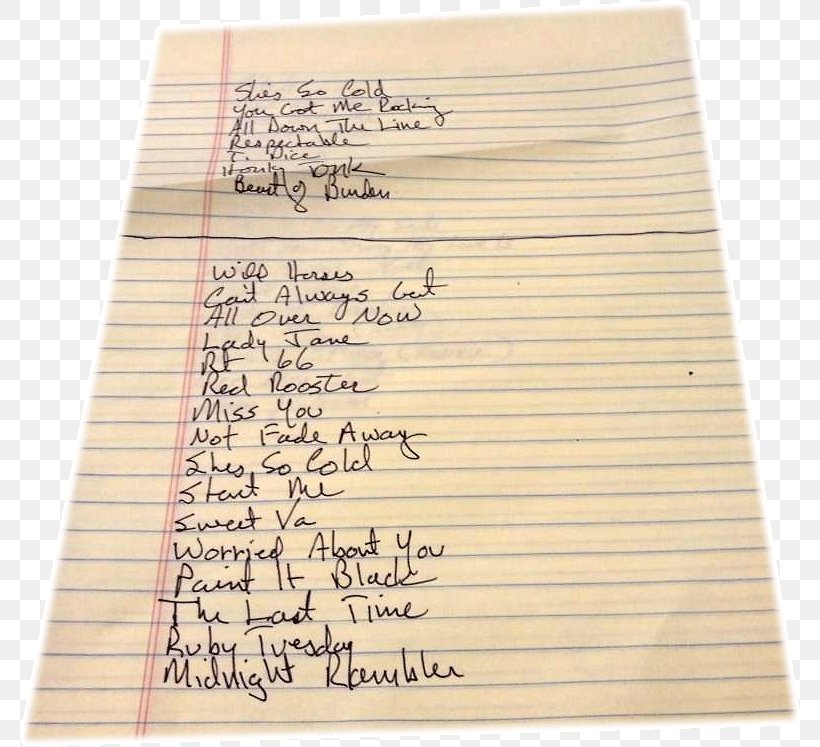 Shes So Cold
You Got Me Rocking
All Down The Line
Respectable
T. Dice
Honky Tonk
Beast of Burden
Wild Horses
Can't Always Get
All Over Now
Lady Jane
Rt 66
Red Rooster
Miss You
Not Fade Away
Shes So Cold
Start Me
Sweet Va
Worried About You
Paint It Black
The Last Time
Ruby Tuesday
Midnight Rambler